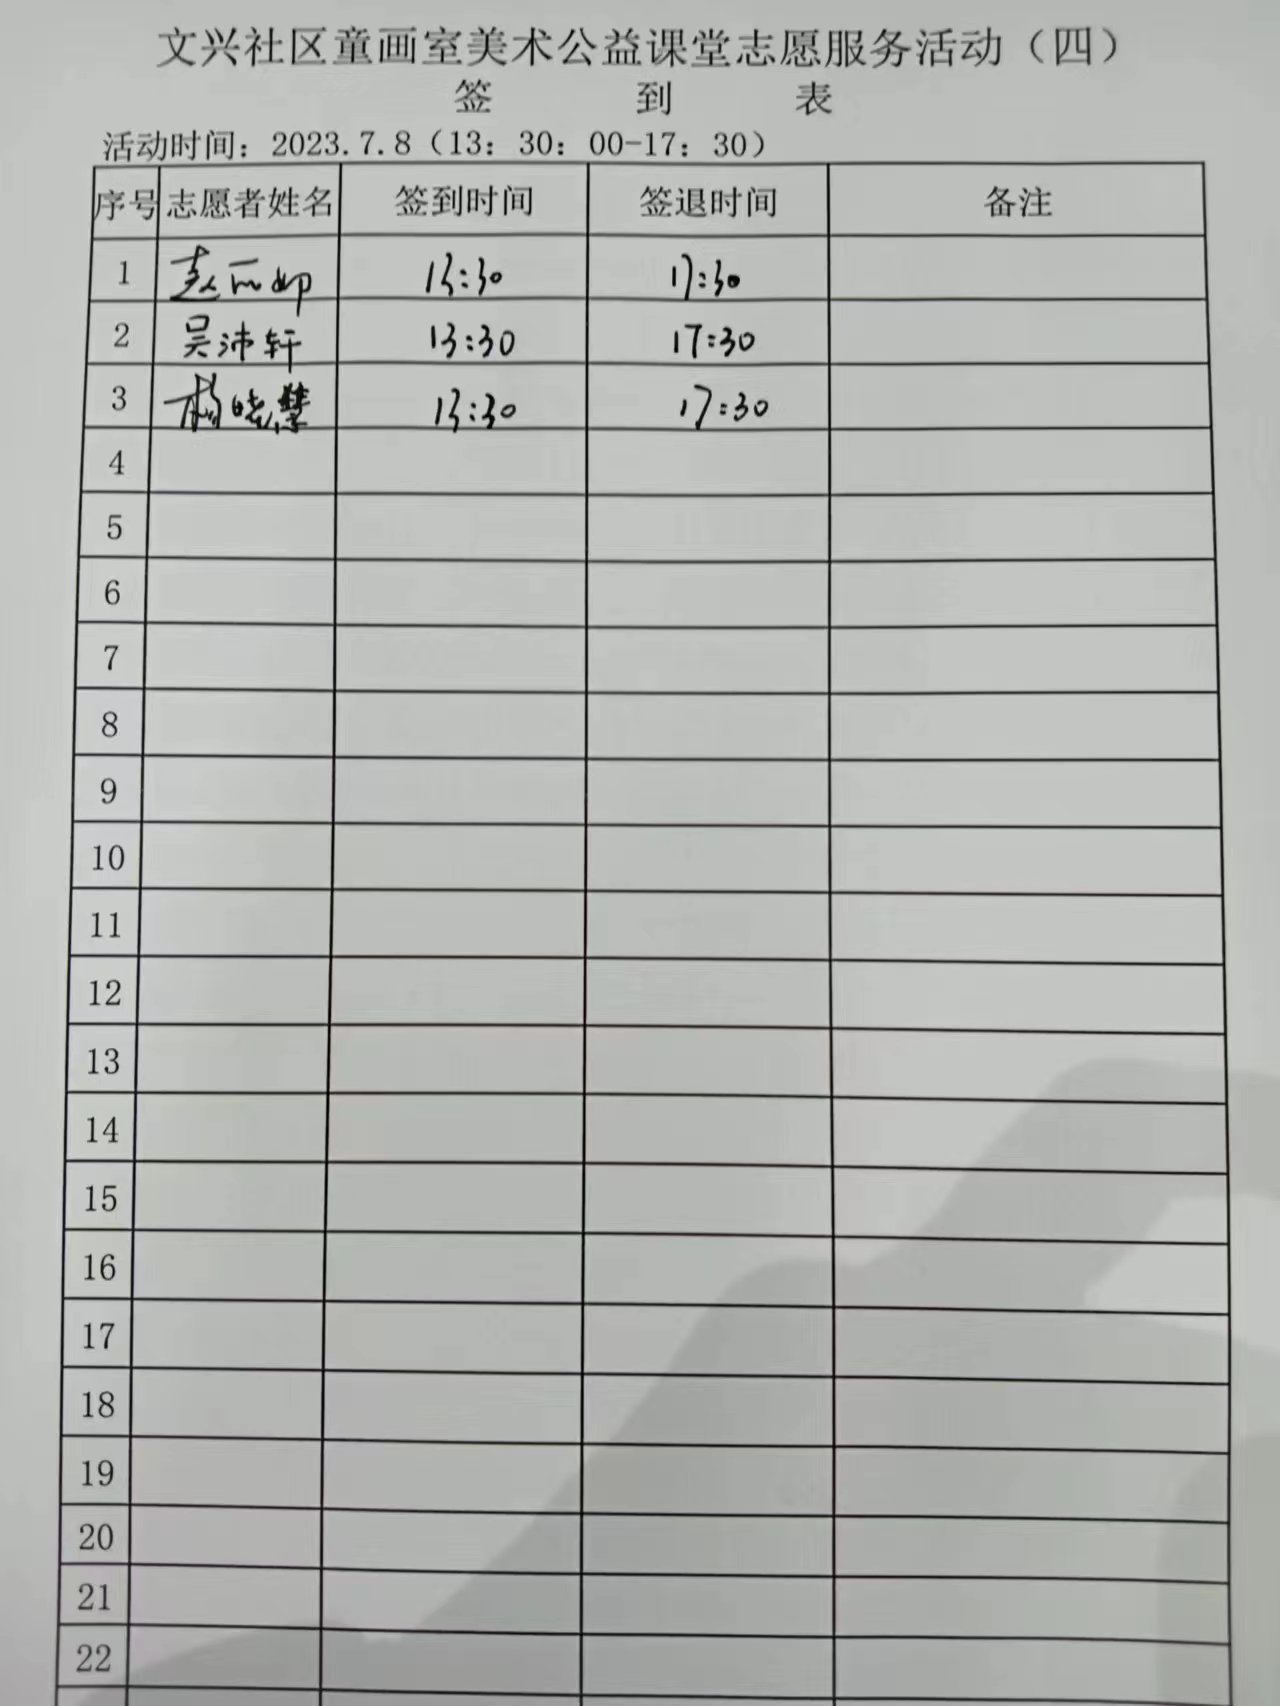 文兴社区童画室美术公益课堂志愿服务活动（四）
签 到 表
活动时间：2023.7.8（13：30：00-17：30）
序号 志愿者姓名 签到时间 签退时间 备注
1 赵 13:30 17:30
2 吴沛轩 13:30 17:30
3 杨晓慧 13:30 17:30
4
5
6
7
8
9
10
11
12
13
14
15
16
17
18
19
20
21
22